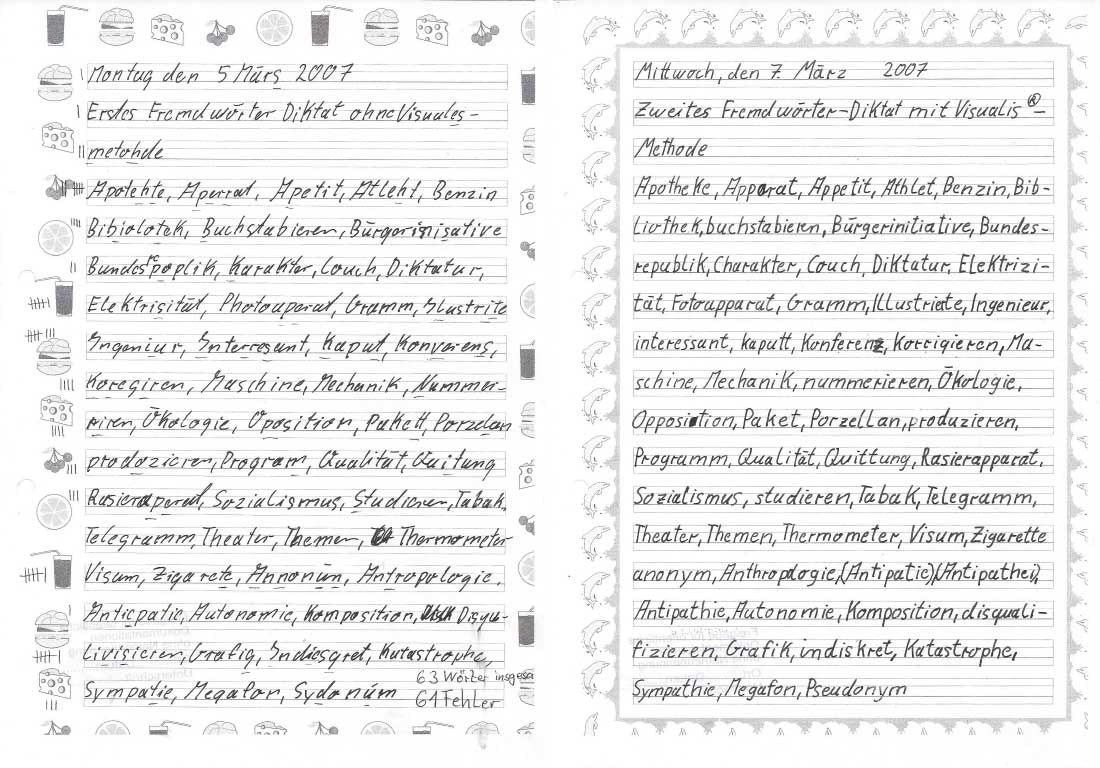 Montag den 5 Märs 2007
Erstes Fremdwörter Diktat ohne Visuales-
metohde
Apotehte, Aperrat, Apetit, Atleht, Benzin
Bibiolotek, Buchstabieren, Bürgerinisative
Bundesrepoplik, Karakter, Couch, Diktatur,
Elektrisität, Photoaperat, Gramm, Ilustrite
Ingeniur, Interresant, Kaput, Konverens,
Koregiren, Maschine, Mechanik, Nummer-
riren, Ökologie, Oposition, Pakett, Porzelan
prodozieren, Program, Qualität, Quitung
Rasieraperat, Sozialismus, Studieren, Tabak,
Telegramm, Theater, Themen, Thermometer
Visum, Zigarete, Annonüm, Antropologie,
Anticpatie, Autonomie, Komposition, Disqu-
livisieren, Grafig, Indiesqret, Katastrophe,
Sympatie, Megafon, Sydonüm
63 Wörter insgesa
61 Fehler
Mittwoch, den 7. März 2007
Zweites Fremdwörter-Diktat mit Visualis®-
Methode
Apotheke, Apparat, Appetit, Athlet, Benzin, Bib-
Liothek, buchstabieren, Bürgerinitiative, Bundes-
republik, Charakter, Couch, Diktatur, Elektrizi-
tät, Fotoapparat, Gramm, Illustriete, Ingenieur,
interessant, kaputt, Konferenz, Korrigieren, Ma-
schine, Mechanik, nummerieren, Ökologie,
Opposiotion, Paket, Porzellan, produzieren,
Programm, Qualität, Quittung, Rasierapparat,
Sozialismus, studieren, Tabak, Telegramm,
Theater, Themen, Thermometer, Visum, Zigarette
anonym, Anthropologie, (Antipatie), (Antipathei),
Antipathie, Autonomie, Komposition, disquali-
fizieren, Grafik, indiskret, Katastrophe,
Sympathie, Megafon, Pseudonym